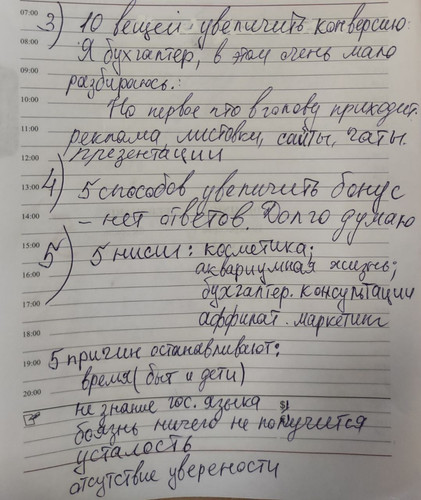 07:00
3) 10 вещей увеличить конверсию:
08:00 Я бухгалтер, в этом очень мало
09:00 разбираюсь.:
10:00 Но первое что в голову приходит.
11:00 реклама листовки, сайты, чаты.
12:00 презентации
13:00 4) 5 способов увеличить бонус
14:00 – нет ответов. Долго думаю
15:00 5) 5 ниши: косметика;
16:00 аквариумная жизнь;
17:00 бухгалтер. консультации
18:00 аффилат. маркетинг
19:00 5 причин останавливают:
20:00 время (быт и дети)
не знание гос. языка
боязнь ничего не получится
усталость
отсутствие уверености